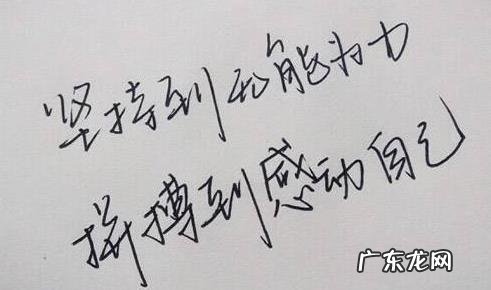 坚持到无能为力
拼搏到感动自己
广东龙网